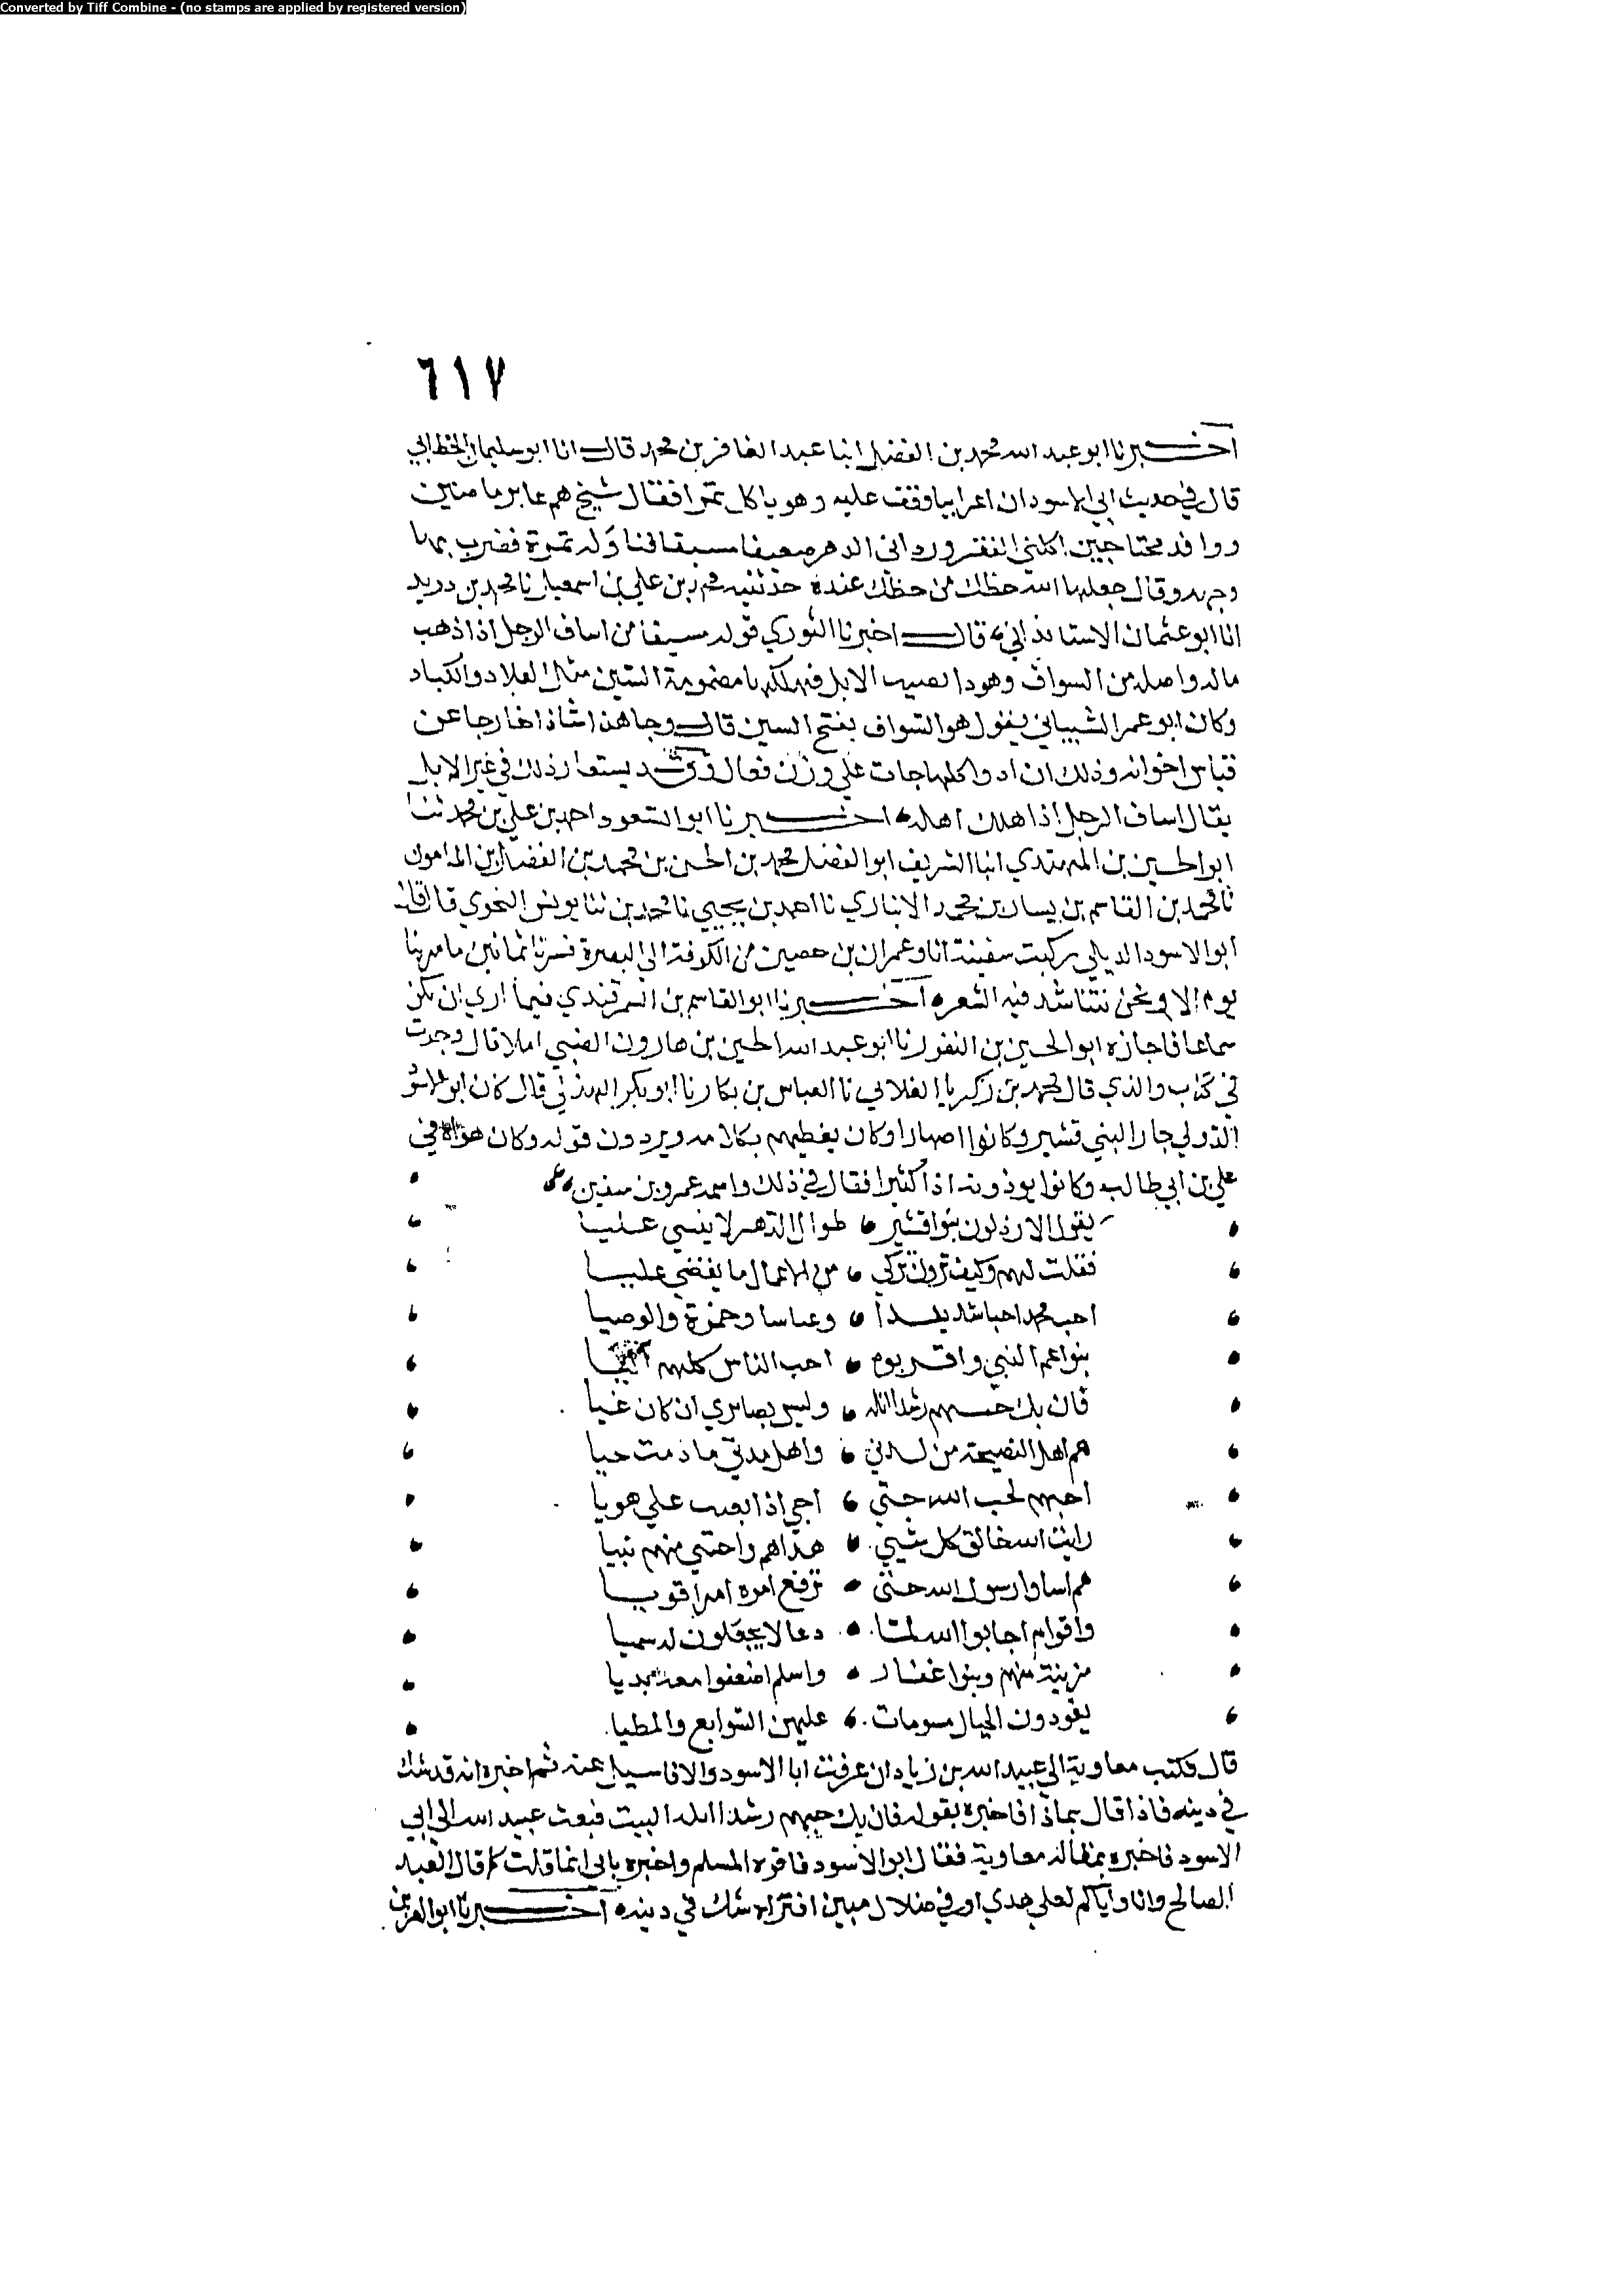 Converted by Tiff Combine - (no stamps are applied by registered version)
٦١٧
اخبرنا ابو عبد الله محمد بن الفضل انبا عبد الغافر بن محمد قال انا ابو سليمان الخطابي
قال في حديث ابي الاسود ان اعرابيا وقف عليه وهو ياكل تمرا فقال شيخ هم عابر ماضين
ووافد محتاجين اكلني الفقر وردني الدهر ضعيفا مسيفا فناوله تمرة فضرب بها
وجهه وقال جعلها الله حظك من حظك عنده حدثنيه محمد بن علي بن اسمعيل نا محمد بن دريد
انا ابو عثمان قال اخبرنا التوري قوله مسيفا من اساف الرجل اذا ذهب
ماله واصله من السواف وهو دا يصيب الابل فيهلكها مضمومة السين مثل والكباد
وكان ابو عمر الشيباني يقول هو السواف بفتح السين قال وجا هذا شاذا خارجا عن
قياس اخوانه وذلك ان ادوا كلها جات علي وزن فعال وقد يستعار ذلك في غير الابل
يقال اساف الرجل اذا هلك اهله اخبرنا ابو السعود احمد بن علي بن محمد ثنا
ابو الحسين بن المهتدي انبا الشريف ابو الفضل محمد بن الحسن بن محمد بن الفضل بن المامون
نا محمد بن القاسم بن بسار بن محمد الانباري نا احمد بن يحيي نا محمد بن ثنا يونس النحوي قال قال
ابو الاسود الديلي ركبت سفينة انا وعمران بن حصين من الكوفة الي البصرة فسرنا ثمانين ما سرنا
يوم الا ونحن نتناشد فيه الشعر اخبرنا ابو القاسم بن السمرقندي فيما اري ان تكن
سماعا فاجازه ابو الحسين بن النقور نا ابو عبد الله الحسين بن هارون الضبي املا قال وجدت
في كتاب والدي قال محمد بن زكريا الغلابي نا العباس بن بكار نا ابو بكر الهذلي قال كان ابو الاسود
الدولي جارا لبني قشير وكانوا اصهارا وكان يغظهم بكلامه ويردون قوله وكان هواه في
علي بن ابي طالب وكانوا يوذونه اذا كثيرا فقال في ذلك واسمه عمرو بن سفين
يقول الارذلون بنوا قشير طوال الدهر لا ينسي عليا
فقلت لهم وكيف ترون تركي من الاعمال ما يقضي عليا
احب محمدا حبا شديدا وعباسا وحمزة والوصيا
بنوا عم النبي واقربوه احب الناس كلهم
فان يك حبهم رشدا انله وليس بضائري ان كان غيا
هم اهل النصيحة من لدني واهل مودتي ما دمت حيا
احبهم لحب الله حتي اجي اذا بعثت علي هويا
رايت الله خالق كل شيي هداهم واجتبي منهم نبيا
هم اساوا رسول الله حتي ترفع امره امرا قويا
واقوام اجابوا الله لما دعا لا يجعلون له سميا
مزينة منهم وبنوا غفار واسلم اضعفوا معه بديا
يقودون الجيال مسومات عليهن السوابغ والمطيا
قال فكتب معاوية الي عبيد الله بن زياد ان عرفت ابا الاسود والا فاسيل عنه ثم اخبره انه قد شك
في دينه فاذا قال بماذا فاخبره بقوله فان يك حبهم رشدا انله البيت فبعث عبيد الله الي ابي
الاسود فاخبره بمقاله معاوية فقال ابو الاسود فاقره السلم واخبره باني انما قلت كما قال العبد
الصالح وانا واياكم لعلي هدي او في ضلال مبين افتراه شك في دينه اخبرنا ابو العز بن